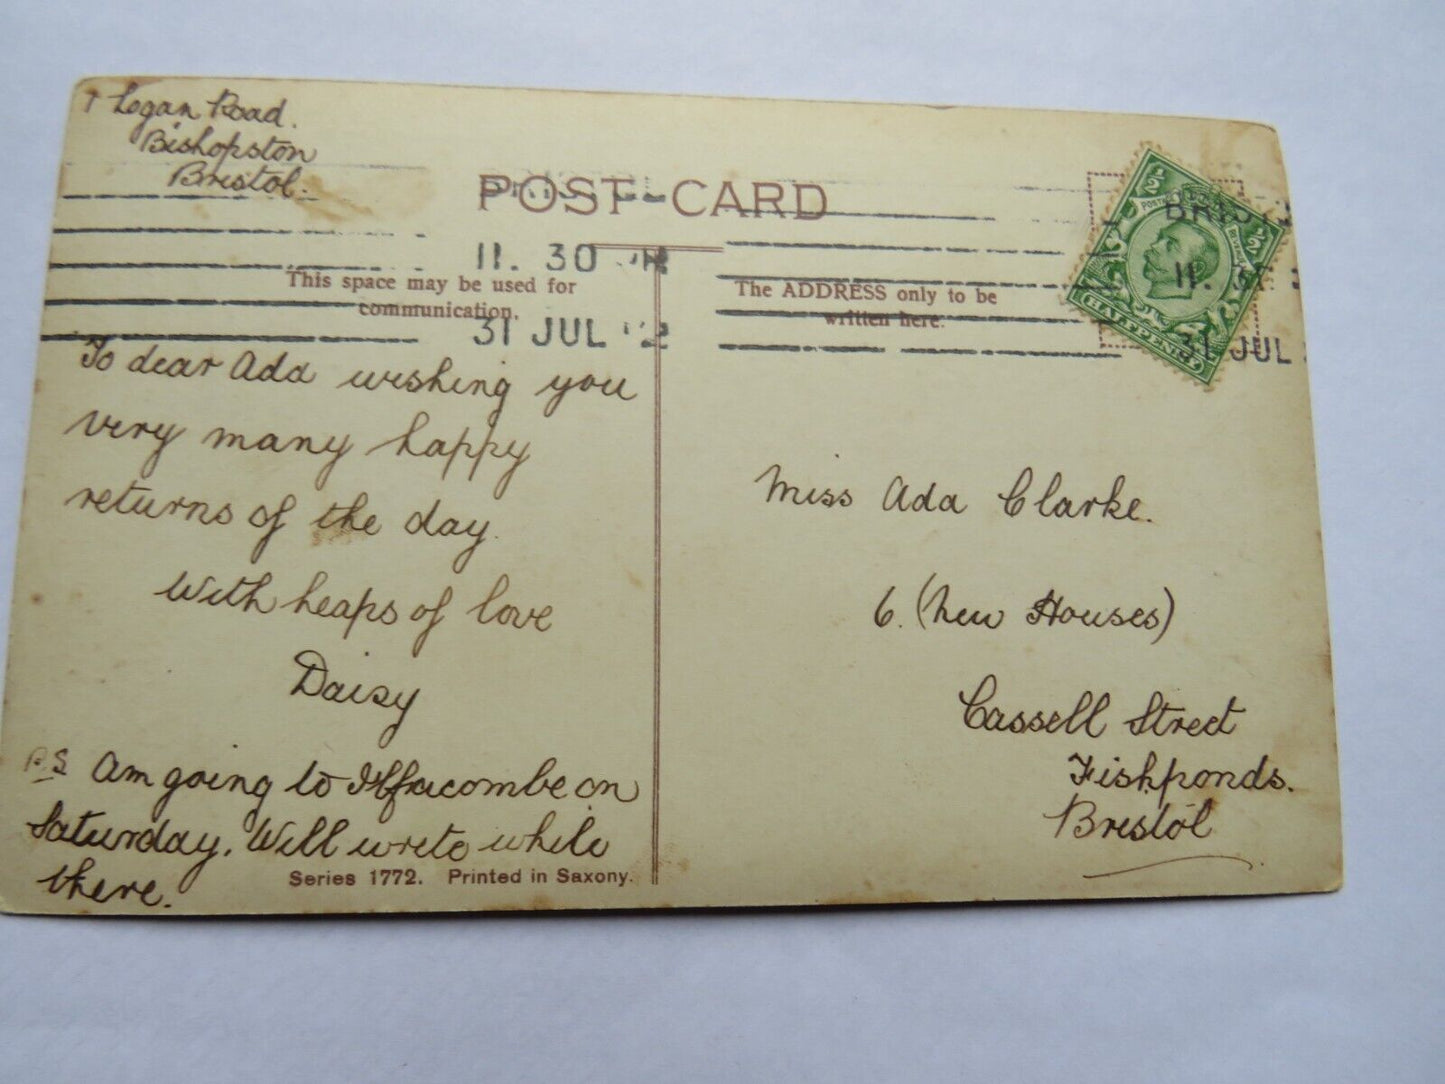 Logan Road.
Bishopston
Bristol.
POST-CARD
11. 30
31 JUL 12
This space may be used for
communication.
The ADDRESS only to be
written here.
To dear Ada wishing you
very many happy
returns of the day.
With heaps of love
Daisy
P.S. Am going to Ilfracombe on
Saturday. Will write while
there.
Series 1772. Printed in Saxony.
1/2
1/2
POSTAGE
HALFPENNY
BRIS
11. 3
31 JUL
Miss Ada Clarke.
6. (New Houses)
Cassell Street
Fishponds.
Bristol